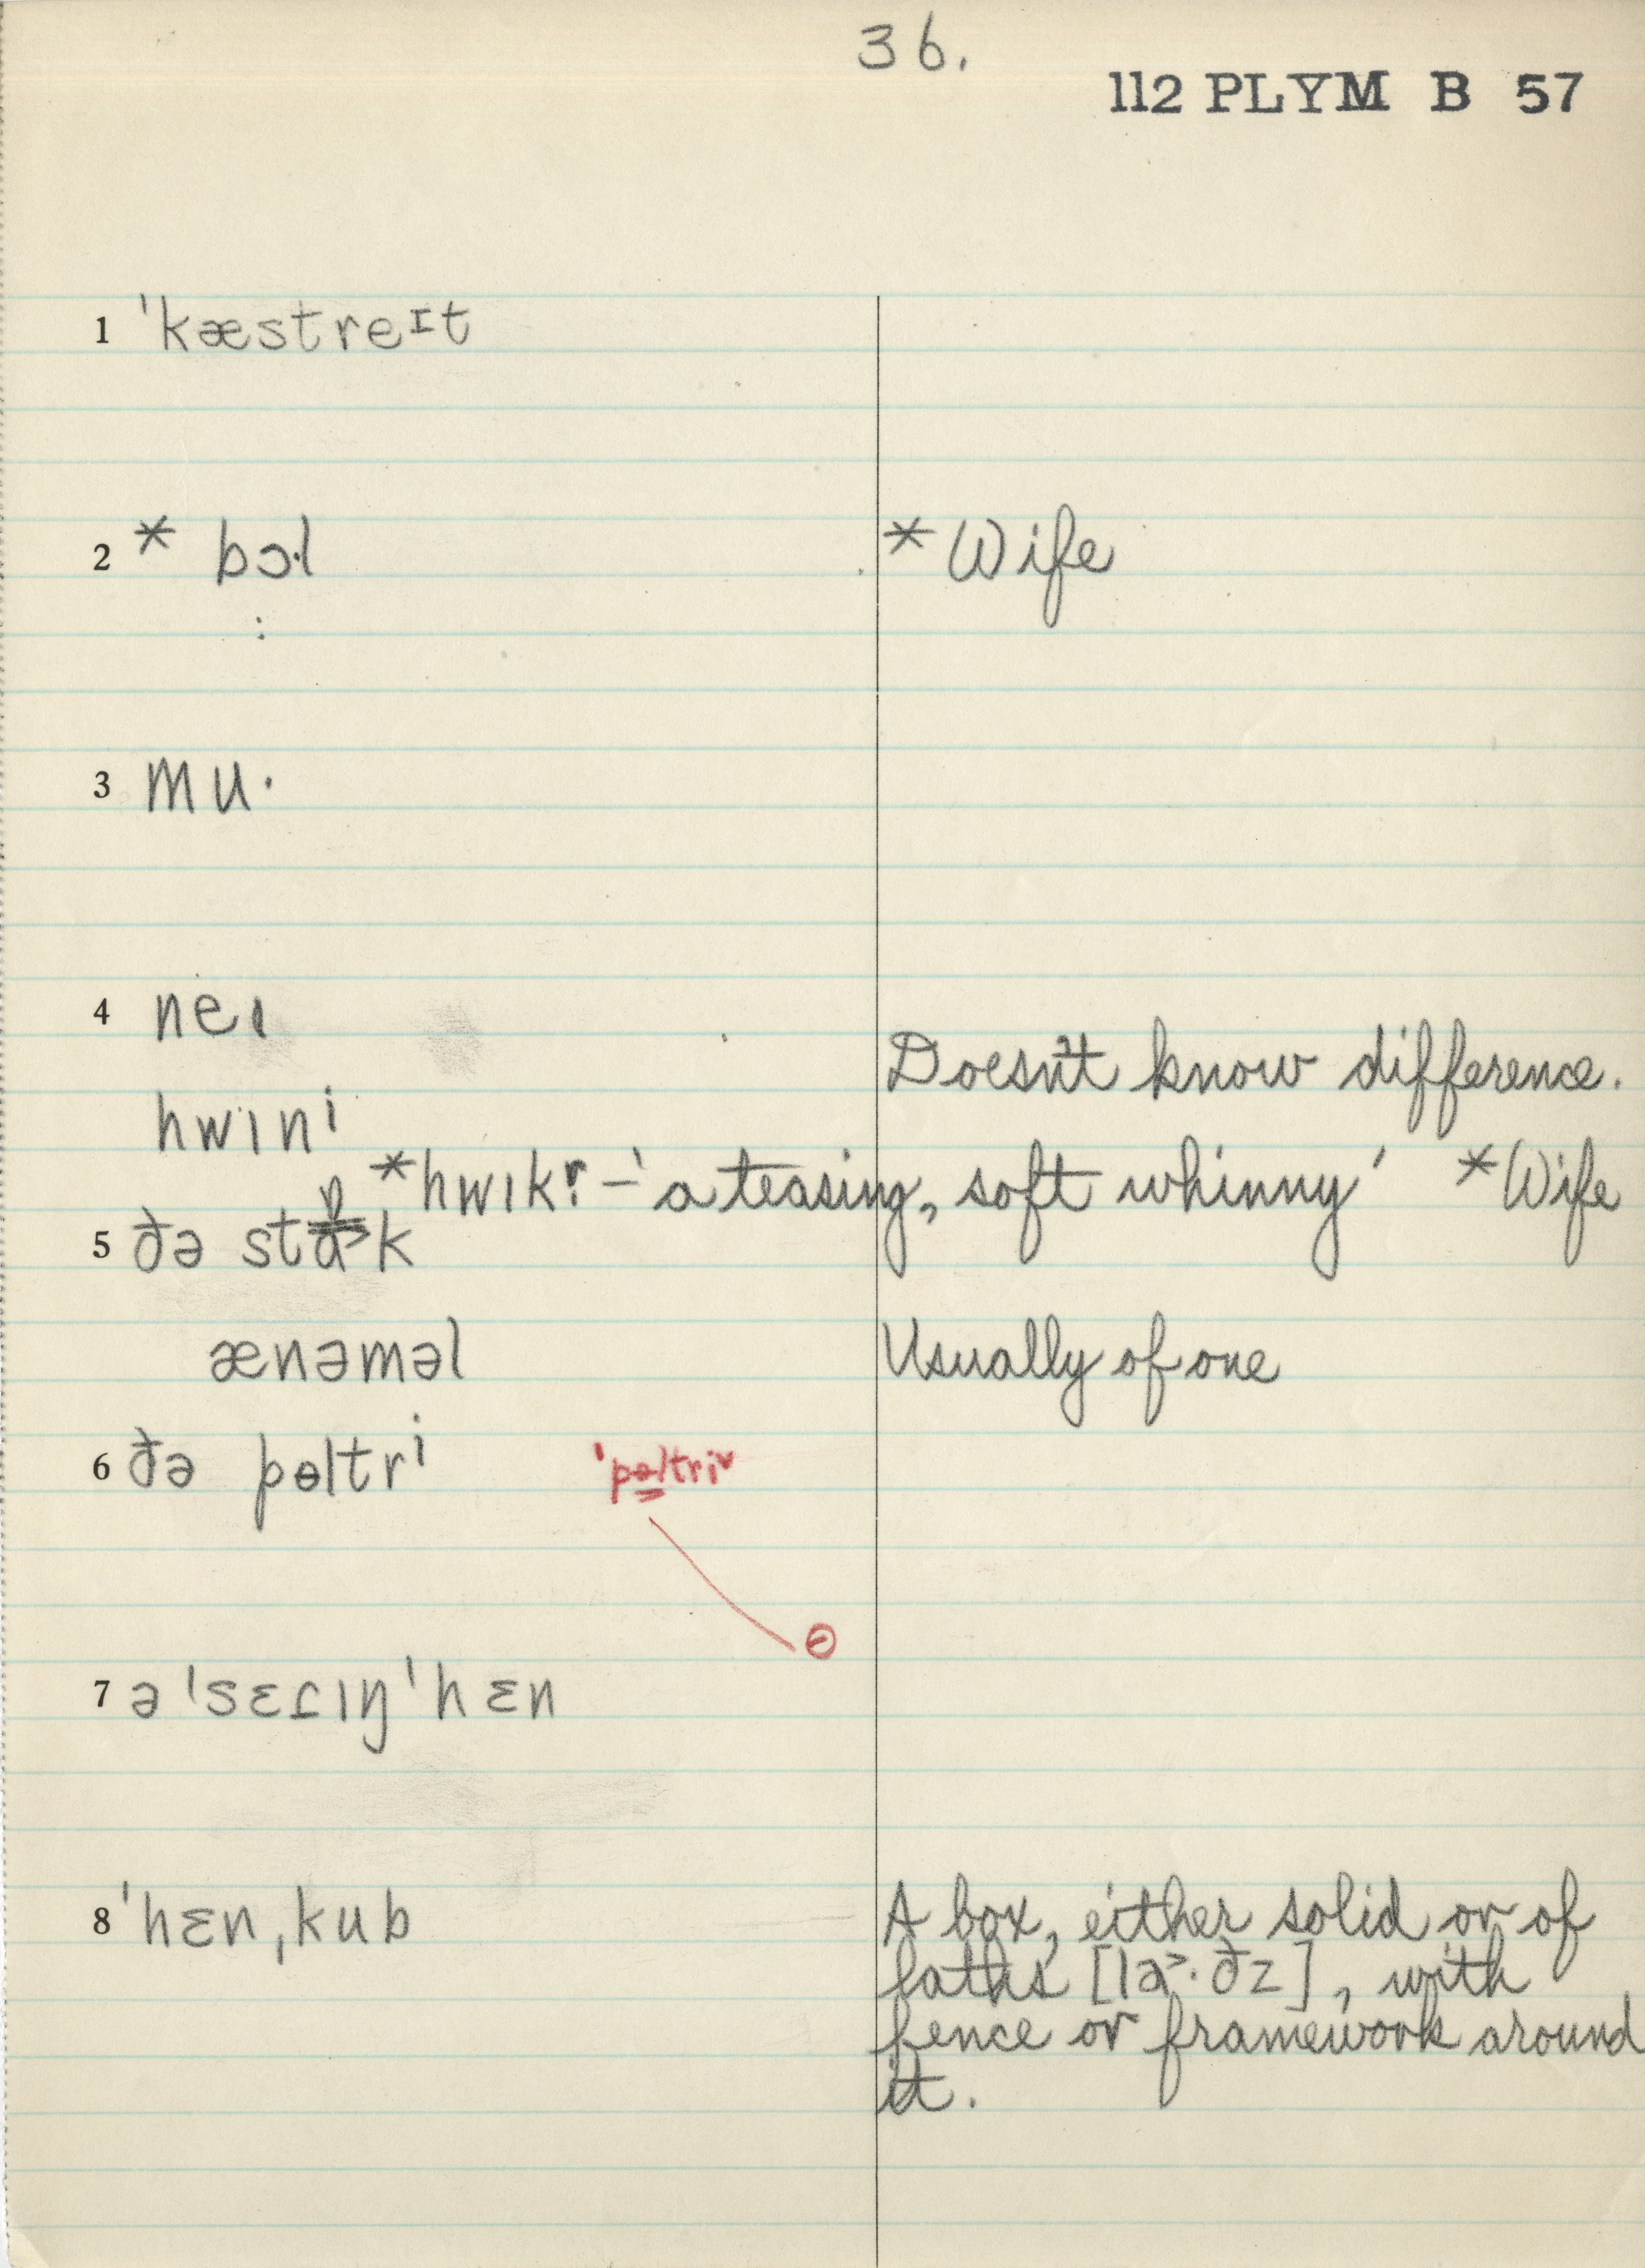 36.
112 PLYM B 57
1 ˈkæstreɪt
2 * bɔ·l * Wife
:
3 mu·
4 neɪ
Doesn't know difference.
hwɪnⁱ
*hwɪkɚ – 'a teasing, soft whinny' *Wife
5 ðə stɒk
ænəməl Usually of one
6 ðə pɵltrⁱ ˈpɵltriˇ
ɵ
7 ə ˈsɛɾɪŋ ˈhɛn
8 ˈhɛnˌkub A box, either solid or of
laths [la˃·ðz], with
fence or framework around
it.